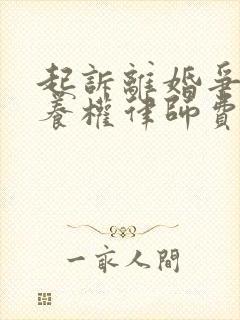 起訴離婚爭
養權律師費
一家人間